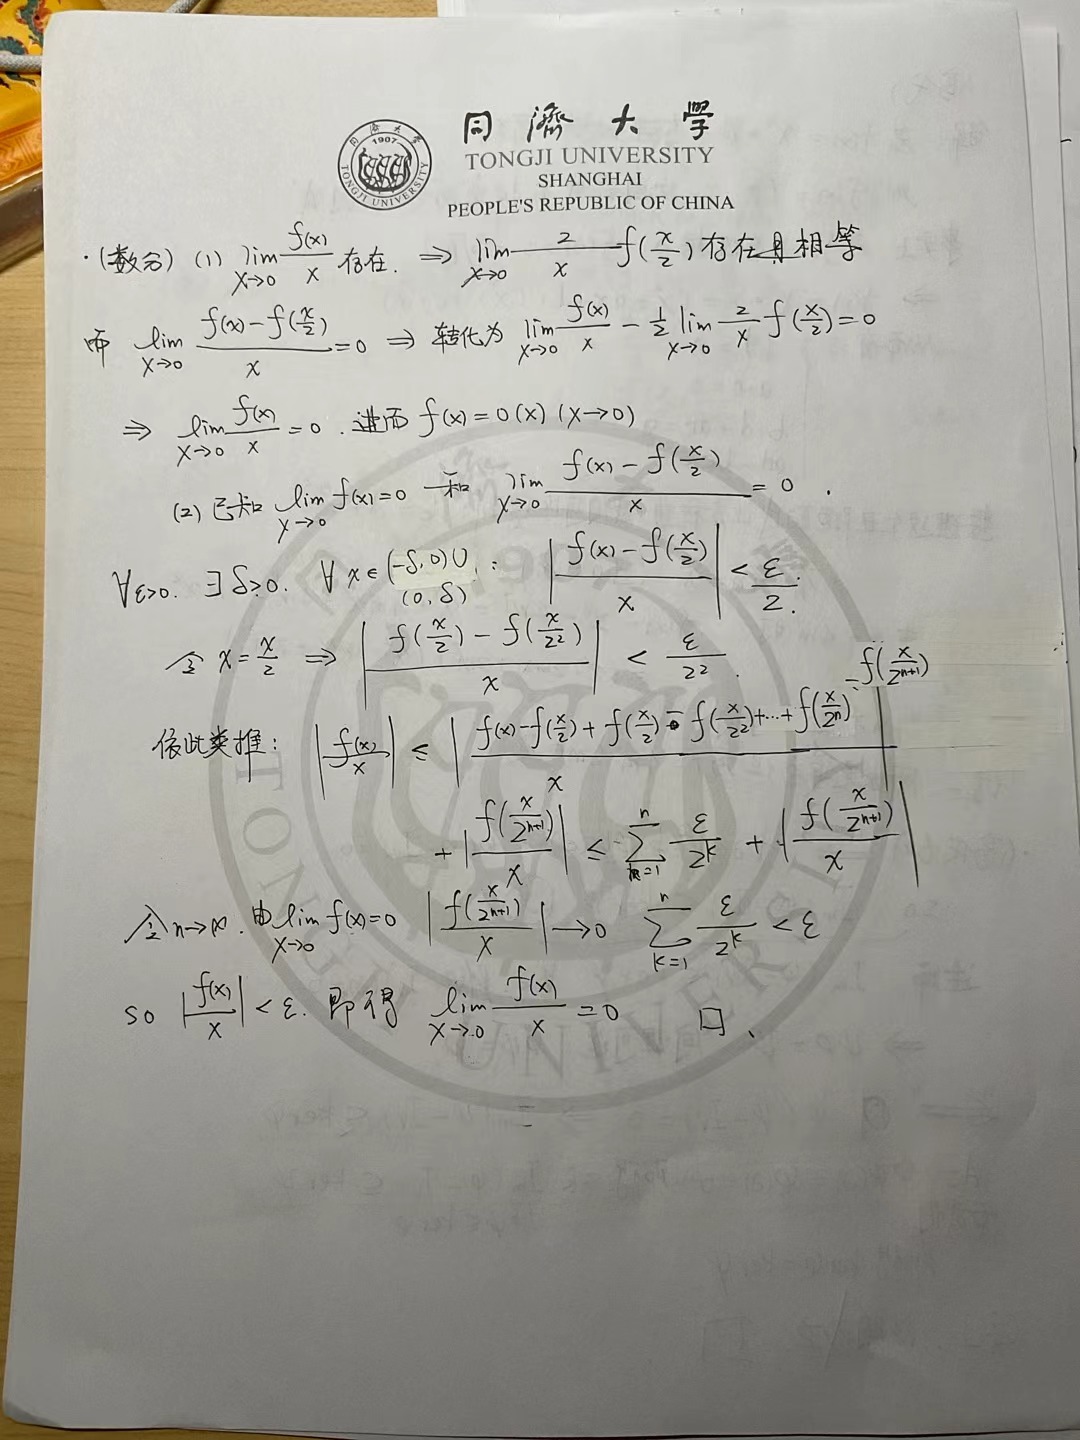 同濟大學
TONGJI UNIVERSITY
SHANGHAI
PEOPLE'S REPUBLIC OF CHINA
·(数分) (1) lim_{x→0} f(x)/x 存在. ⇒ lim_{x→0} 2/x f(x/2) 存在且相等
而 lim_{x→0} (f(x)-f(x/2))/x = 0 ⇒ 转化为 lim_{x→0} f(x)/x - 1/2 lim_{x→0} 2/x f(x/2) = 0
⇒ lim_{x→0} f(x)/x = 0. 进而 f(x)=o(x) (x→0)
(2) 已知 lim_{x→0} f(x)=0 和 lim_{x→0} (f(x)-f(x/2))/x = 0.
∀ε>0. ∃δ>0. ∀x∈(-δ,0)∪(0,δ): |(f(x)-f(x/2))/x| < ε/2.
令 x=x/2 ⇒ |(f(x/2)-f(x/2²))/x| < ε/2².
依此类推: |f(x)/x| ≤ |(f(x)-f(x/2)+f(x/2)-f(x/2²)+⋯+f(x/2ⁿ)-f(x/2ⁿ⁺¹))/x|
+ |f(x/2ⁿ⁺¹)/x| ≤ ∑_{k=1}^{n} ε/2ᵏ + |f(x/2ⁿ⁺¹)/x|
令 n→∞. 由 lim_{x→0} f(x)=0 |f(x/2ⁿ⁺¹)/x| → 0 ∑_{k=1}^{n} ε/2ᵏ < ε
so |f(x)/x| < ε. 即得 lim_{x→0} f(x)/x = 0 □.